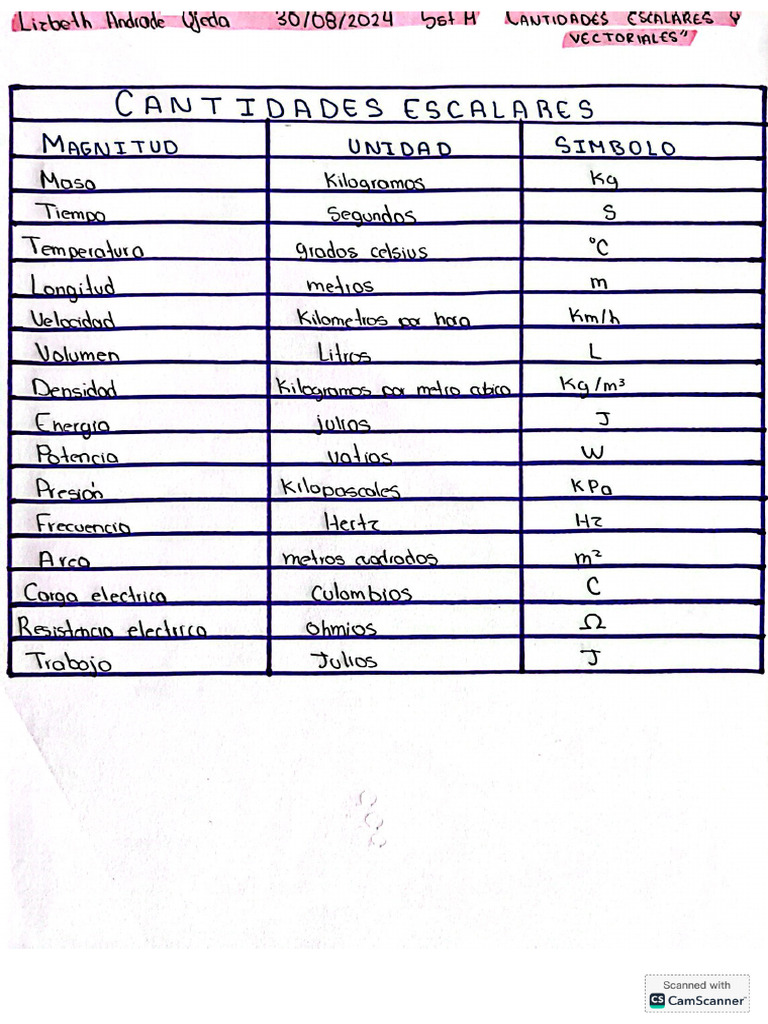 Lizbeth Andrade Ojeda 30/08/2024 5st M CANTIDADES ESCALARES Y
VECTORIALES"
CANTIDADES ESCALARES
MAGNITUD UNIDAD SIMBOLO
Masa Kilogramos Kg
Tiempo Segundos S
Temperatura grados celsius °C
Longitud metros m
Velocidad Kilometros por hora Km/h
Volumen Litros L
Densidad Kilogramos por metro cubico Kg/m³
Energia julios J
Potencia vatios W
Presión Kilopascales KPa
Frecuencia Hertz Hz
Area metros cuadrados m²
Carga electrica Culombios C
Resistencia electrica ohmios Ω
Trabajo Julios J
Scanned with
CS CamScanner